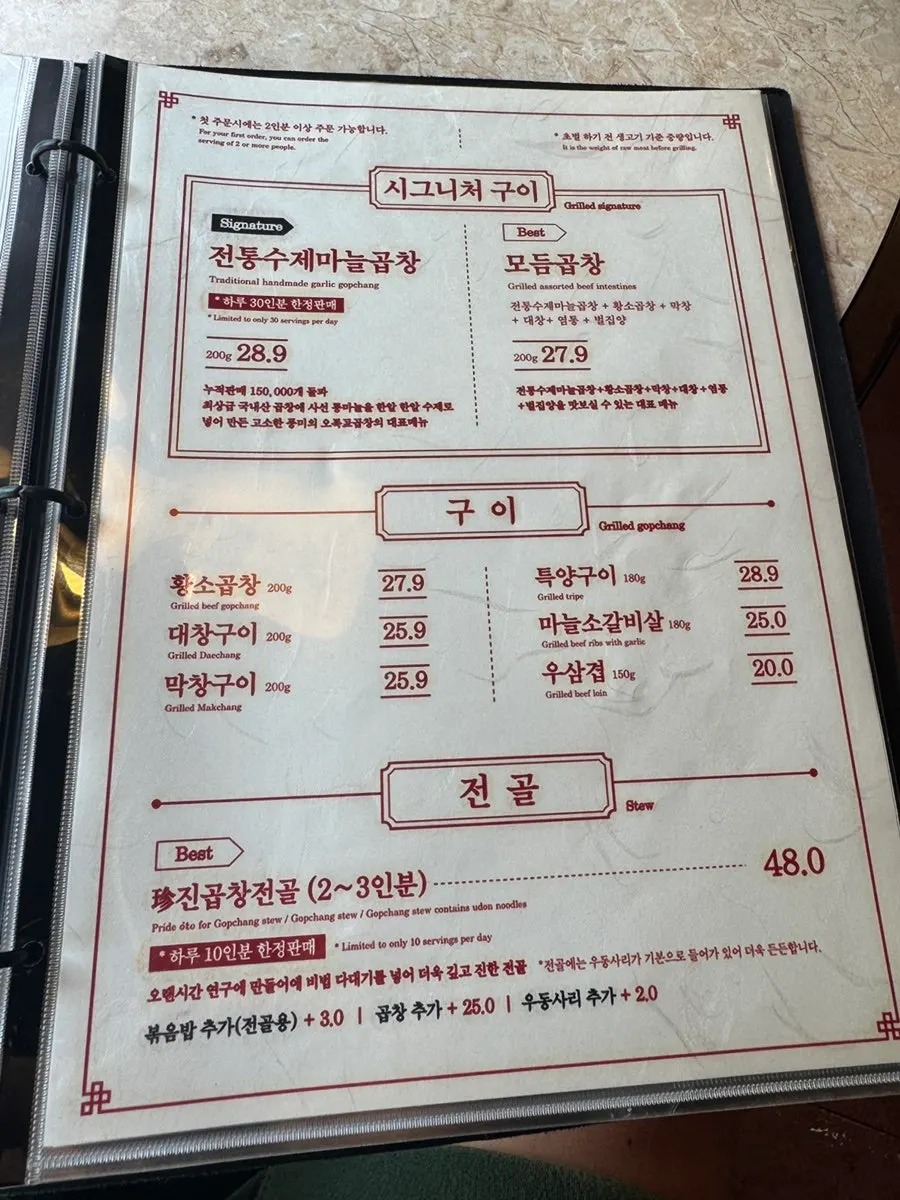 * 첫 주문시에는 2인분 이상 주문 가능합니다.
For your first order, you can order the
serving of 2 or more people.
* 초벌 하기 전 생고기 기준 중량입니다.
It is the weight of raw meat before grilling.
시그니처 구이 Grilled signature
Signature
전통수제마늘곱창
Traditional handmade garlic gopchang
* 하루 30인분 한정판매
* Limited to only 30 servings per day
200g 28.9
누적판매 150,000개 돌파
최상급 국내산 곱창에 사선 통마늘을 한알 한알 수제로
넣어 만든 고소한 풍미의 오복교곱창의 대표메뉴
Best
모듬곱창
Grilled assorted beef intestines
전통수제마늘곱창 + 황소곱창 + 막창
+ 대창+ 염통 + 벌집양
200g 27.9
전통수제마늘곱창+황소곱창+막창+대창+염통
+벌집양을 맛보실 수 있는 대표 메뉴
구 이 Grilled gopchang
황소곱창 200g 27.9
Grilled beef gopchang
대창구이 200g 25.9
Grilled Daechang
막창구이 200g 25.9
Grilled Makchang
특양구이 180g 28.9
Grilled tripe
마늘소갈비살 180g 25.0
Grilled beef ribs with garlic
우삼겹 150g 20.0
Grilled beef loin
전 골 Stew
Best
珍진곱창전골 (2~3인분) 48.0
Pride óto for Gopchang stew / Gopchang stew / Gopchang stew contains udon noodles
* 하루 10인분 한정판매 * Limited to only 10 servings per day
오랜시간 연구에 만들어에 비법 다대기를 넣어 더욱 깊고 진한 전골 *전골에는 우동사리가 기본으로 들어가 있어 더욱 든든합니다.
볶음밥 추가(전골용) + 3.0 | 곱창 추가 + 25.0 | 우동사리 추가 + 2.0